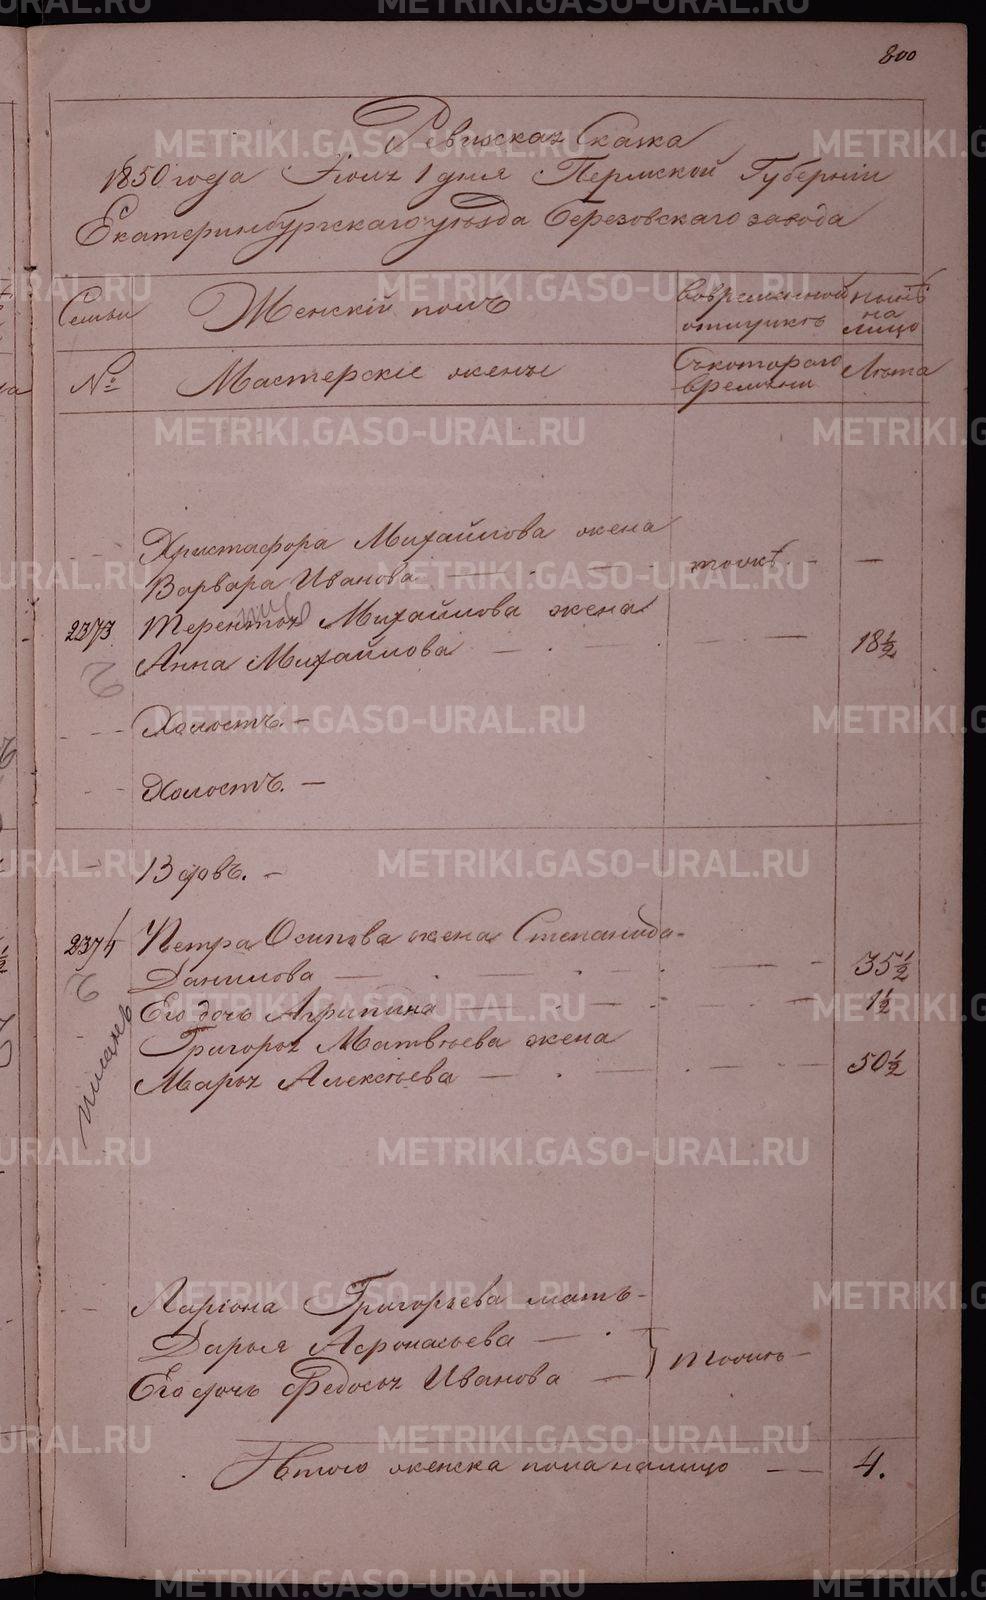 800
Ревизская Сказка
1850 года Iюля 1 дня Пермской Губернiи
Екатеринбургскаго уѣзда Березовскаго завода
Семьи Женскiй полъ Во временной отлучкѣ Нынѣ на лицо
№ Мастерскiе жены Съ котораго времени Лѣта
Христофора Михайлова жена
Варвара Иванова — — тоже — —
2373. Терентья Михайлова жена
Анна Михайлова — — — 18½
Холостъ. —
Холостъ. —
Вдовъ. —
2374 Петра Осипова жена Степанида
Данилова — — — 35½
Его дочь Агрипина — — — 1½
Григорья Матвѣева жена
Марья Алексѣева — — — 50½
Ларiона Григорьева мать
Дарья Афонасьева —
Его дочь Федосья Иванова —
Итого женска пола налицо — 4.
METRIKI.GASO-URAL.RU